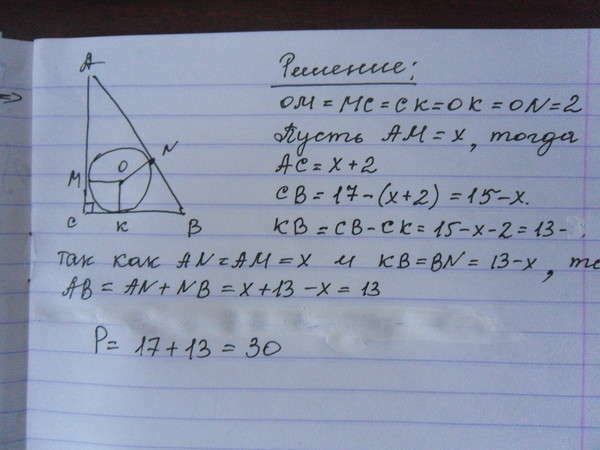 Решение:
A
OM = MC = CK = OK = ON = 2
Пусть AM = x, тогда
N
O
AC = x + 2
M
CB = 17 - (x + 2) = 15 - x.
C K B
KB = CB - CK = 15 - x - 2 = 13 -
так как AN = AM = x и KB = BN = 13 - x, то
AB = AN + NB = x + 13 - x = 13
P = 17 + 13 = 30